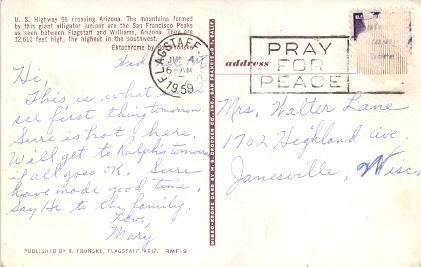 U. S. Highway 66 crossing Arizona. The mountains formed
by this giant alligator juniper are the San Francisco Peaks
as seen between Flagstaff and Williams, Arizona. They are
12,611 feet high, the highest in the southwest.
Ektachrome by
Hi,
This is what
see first thing tomorrow.
Sure is hot here.
Will get to Ralph's tomorrow
if all goes OK. Sure
have made good time.
Say Hi to the family.
Love,
Mary
PUBLISHED BY R. FRONSKE, FLAGSTAFF, ARIZ. RMF-9
MIRRO-KROME CARD BY H. S. CROCKER CO., INC., SAN FRANCISCO 1, CALIF.
FLAGSTAFF
6 - AM
1959
PRAY
FOR
PEACE
address
Mrs. Walter Lane
1702 Highland Ave.
Janesville, Wisc.